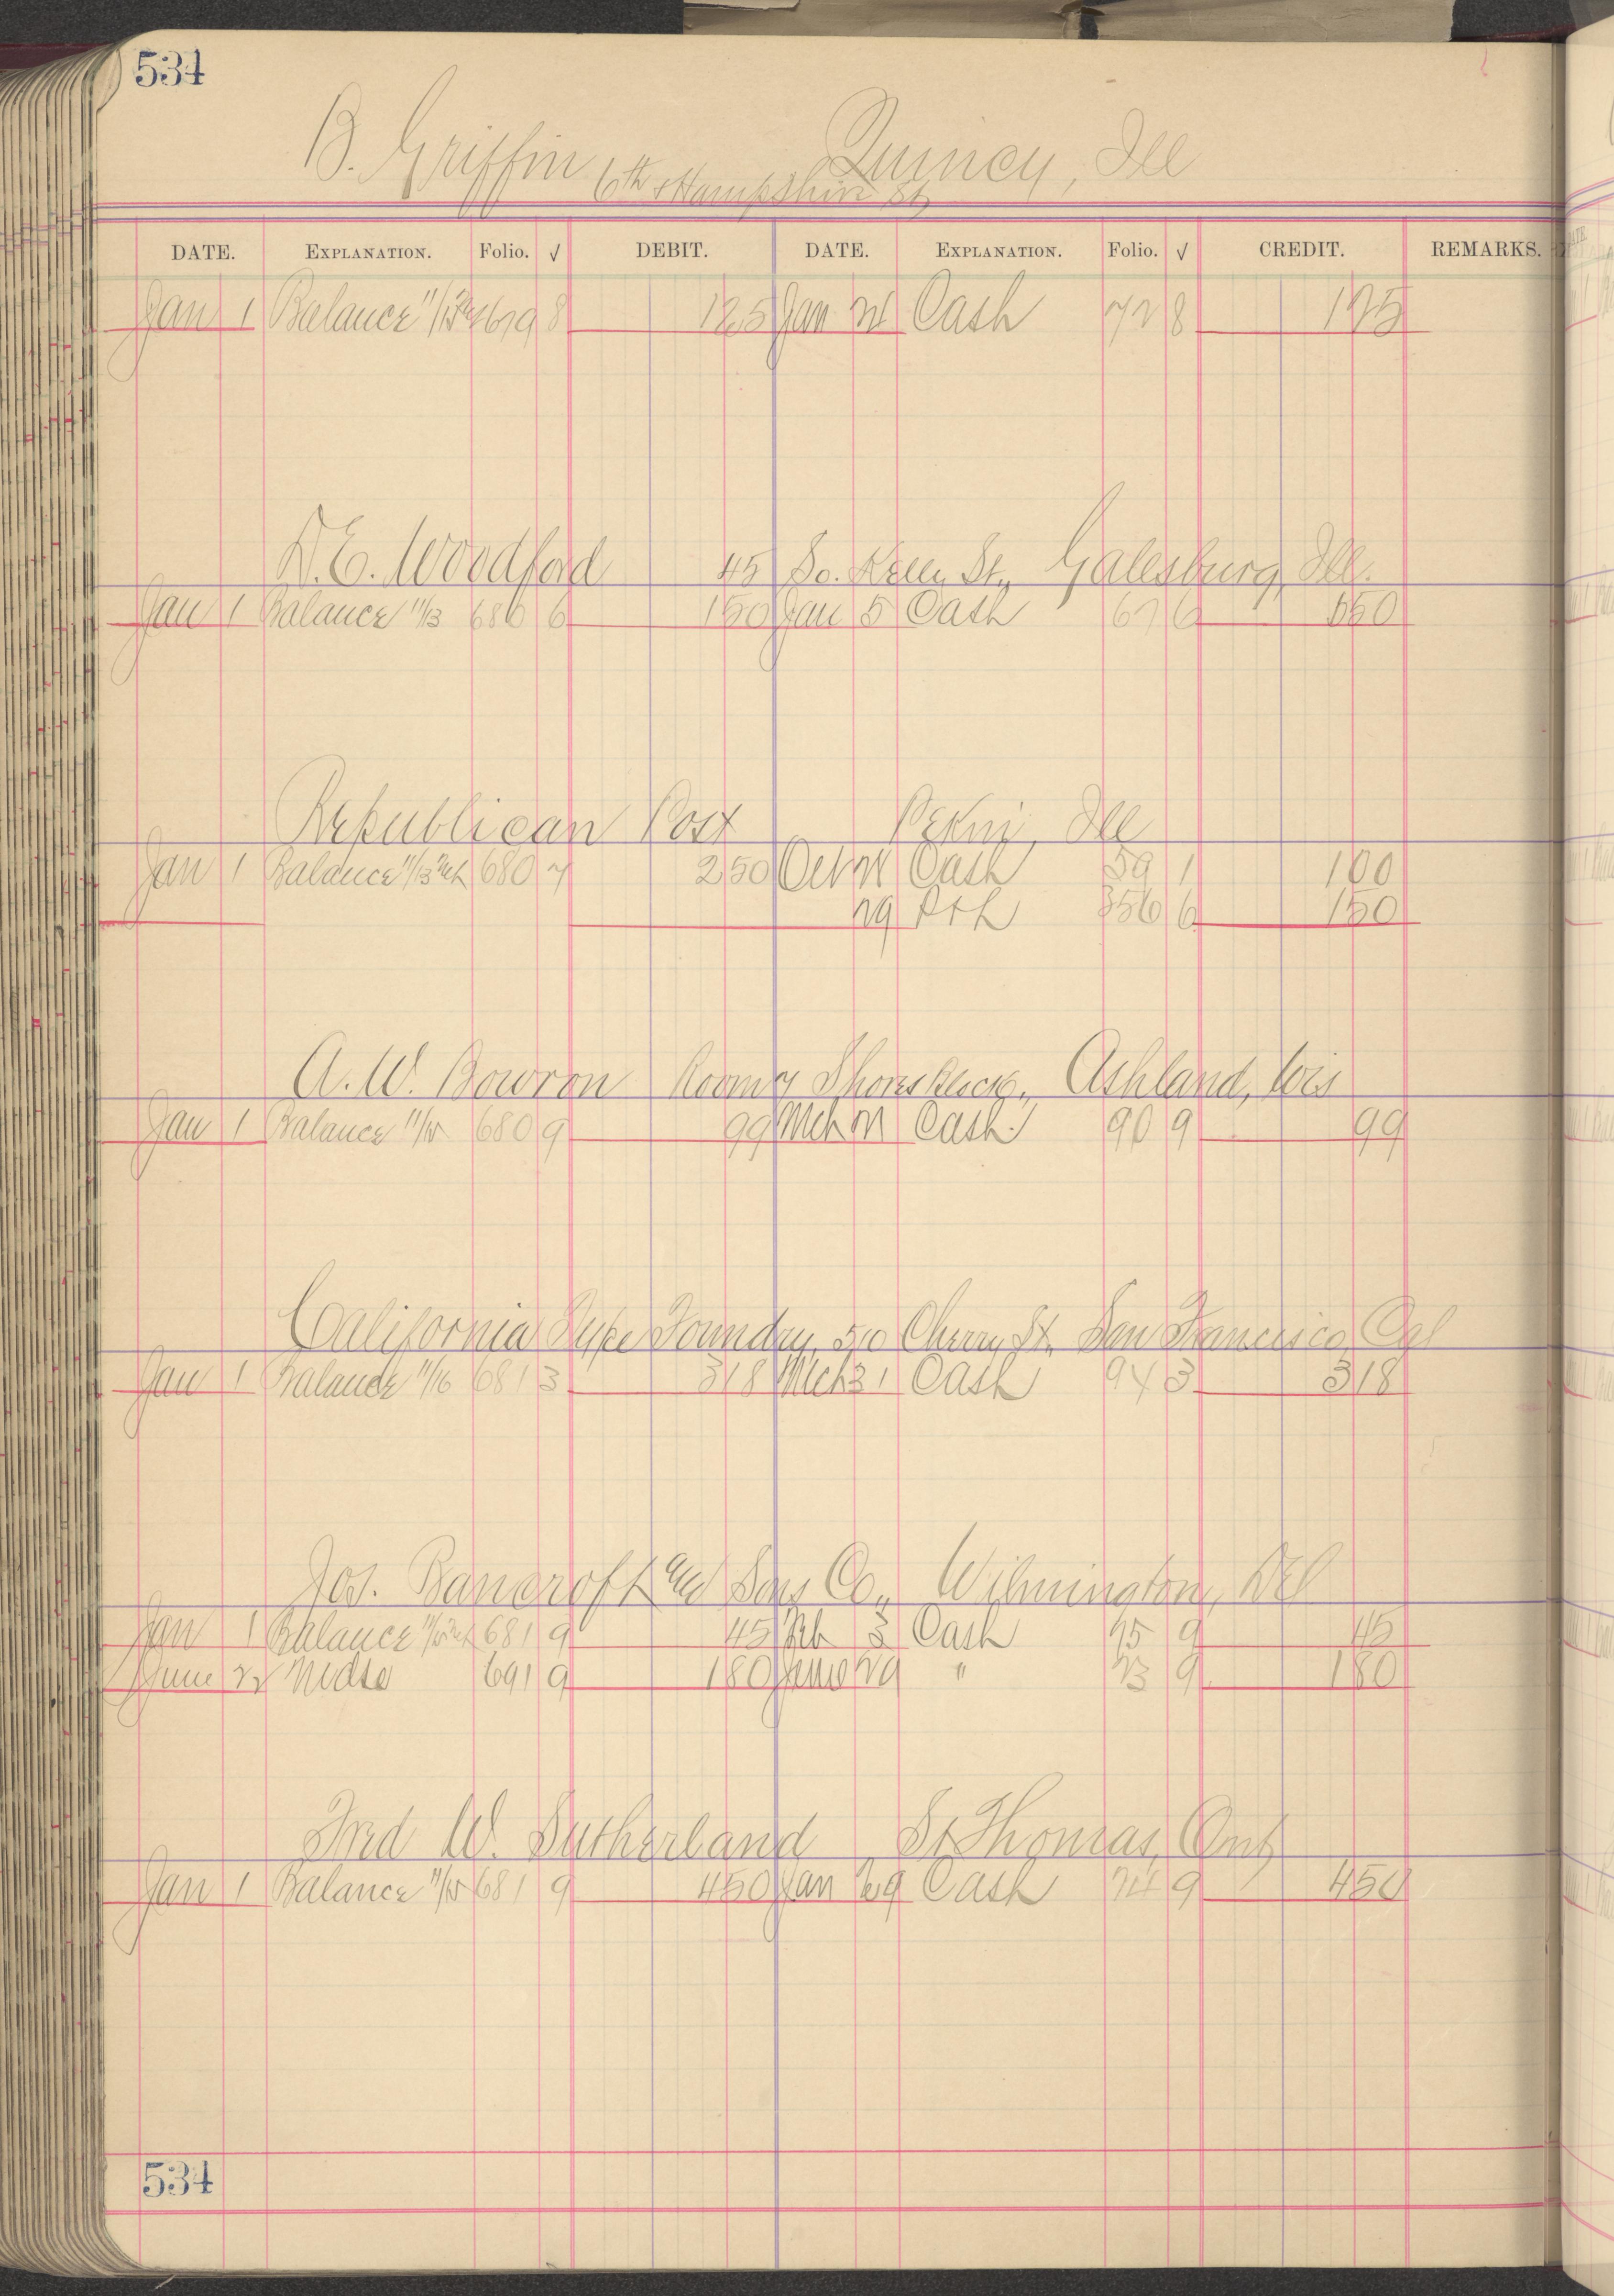 534
B. Griffin Quincy, Ill
6th & Hampshire St,
DATE. EXPLANATION. Folio. √ DEBIT. DATE. EXPLANATION. Folio. √ CREDIT. REMARKS.
Jan 1 Balance 679 8 125 Jan 22 Cash 72 8 125
D. E. Woodford 45 So. Kelly St., Galesburg, Ill.
Jan 1 Balance 11/13 680 6 150 Jan 5 Cash 67 6 150
Republican Post Pekin, Ill
Jan 1 Balance 11/13 680 7 250 Oct Cash 59 1 100
29 P&L 356 6 150
A. W. Bowron Room 7 Shores Block, Ashland, Wis
Jan 1 Balance 680 9 99 Mch 21 Cash 90 9 99
California Type Foundry, 510 Cherry St, San Francisco, Cal
Jan 1 Balance 11/16 681 3 318 Mch 31 Cash 94 3 318
Jos. Bancroft and Sons Co., Wilmington, Del
Jan 1 Balance 681 9 45 Feb 3 Cash 75 9 45
June 22 Mdse 691 9 180 June 29 " 23 9 180
Fred W. Sutherland St Thomas, Ont
Jan 1 Balance 681 9 450 Jan 29 Cash 74 9 450
534